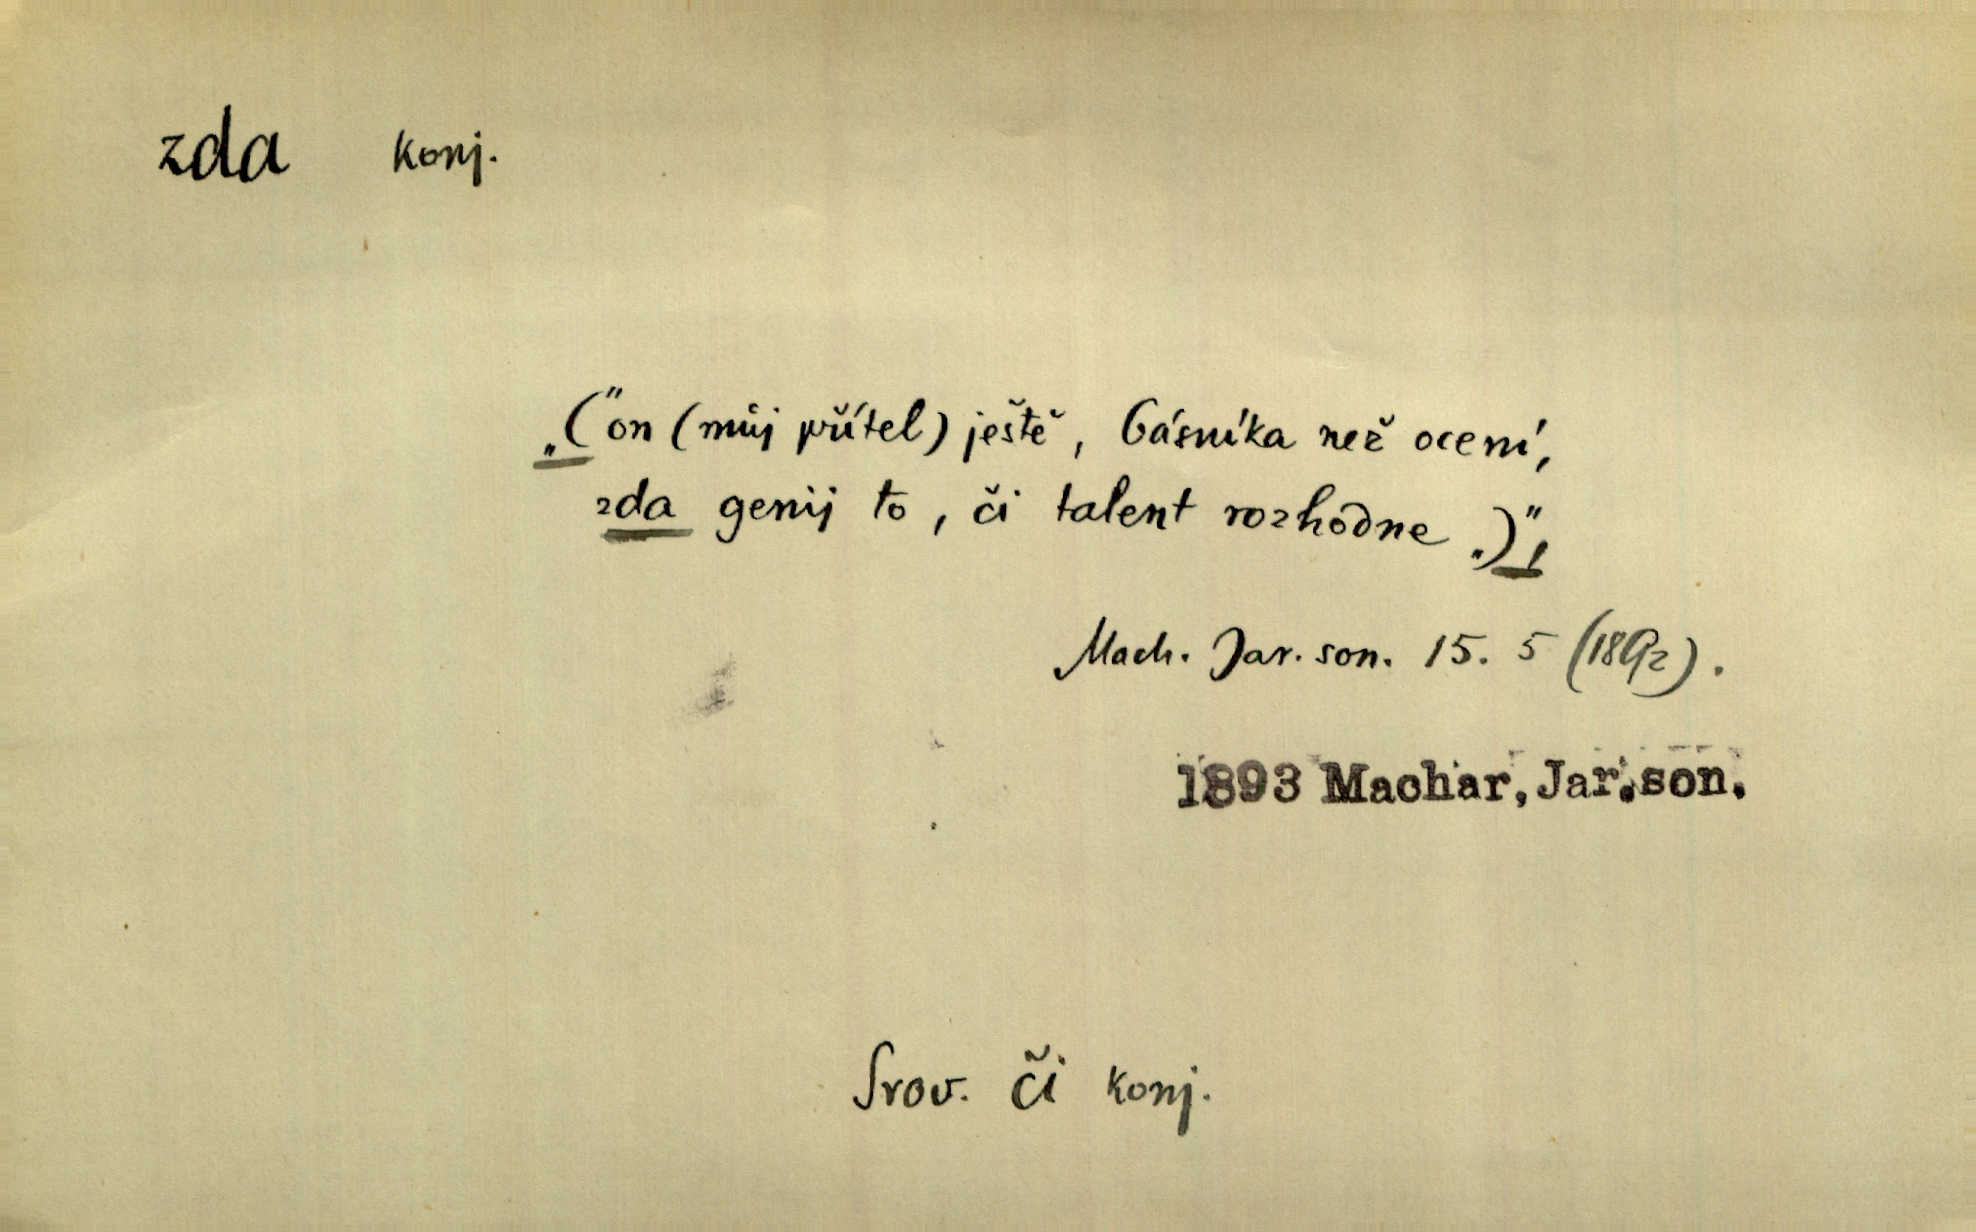 zda konj.
„("on (můj přítel) ještě, básníka než ocení,
zda genij to, či talent rozhodne.)"
Mach. Jar. son. 15. 5 (1892).
1893 Machar, Jar. son.
Srov. či konj.